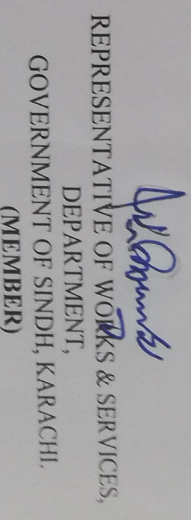 REPRESENTATIVE OF WORKS & SERVICES,
DEPARTMENT,
GOVERNMENT OF SINDH, KARACHI.
(MEMBER)